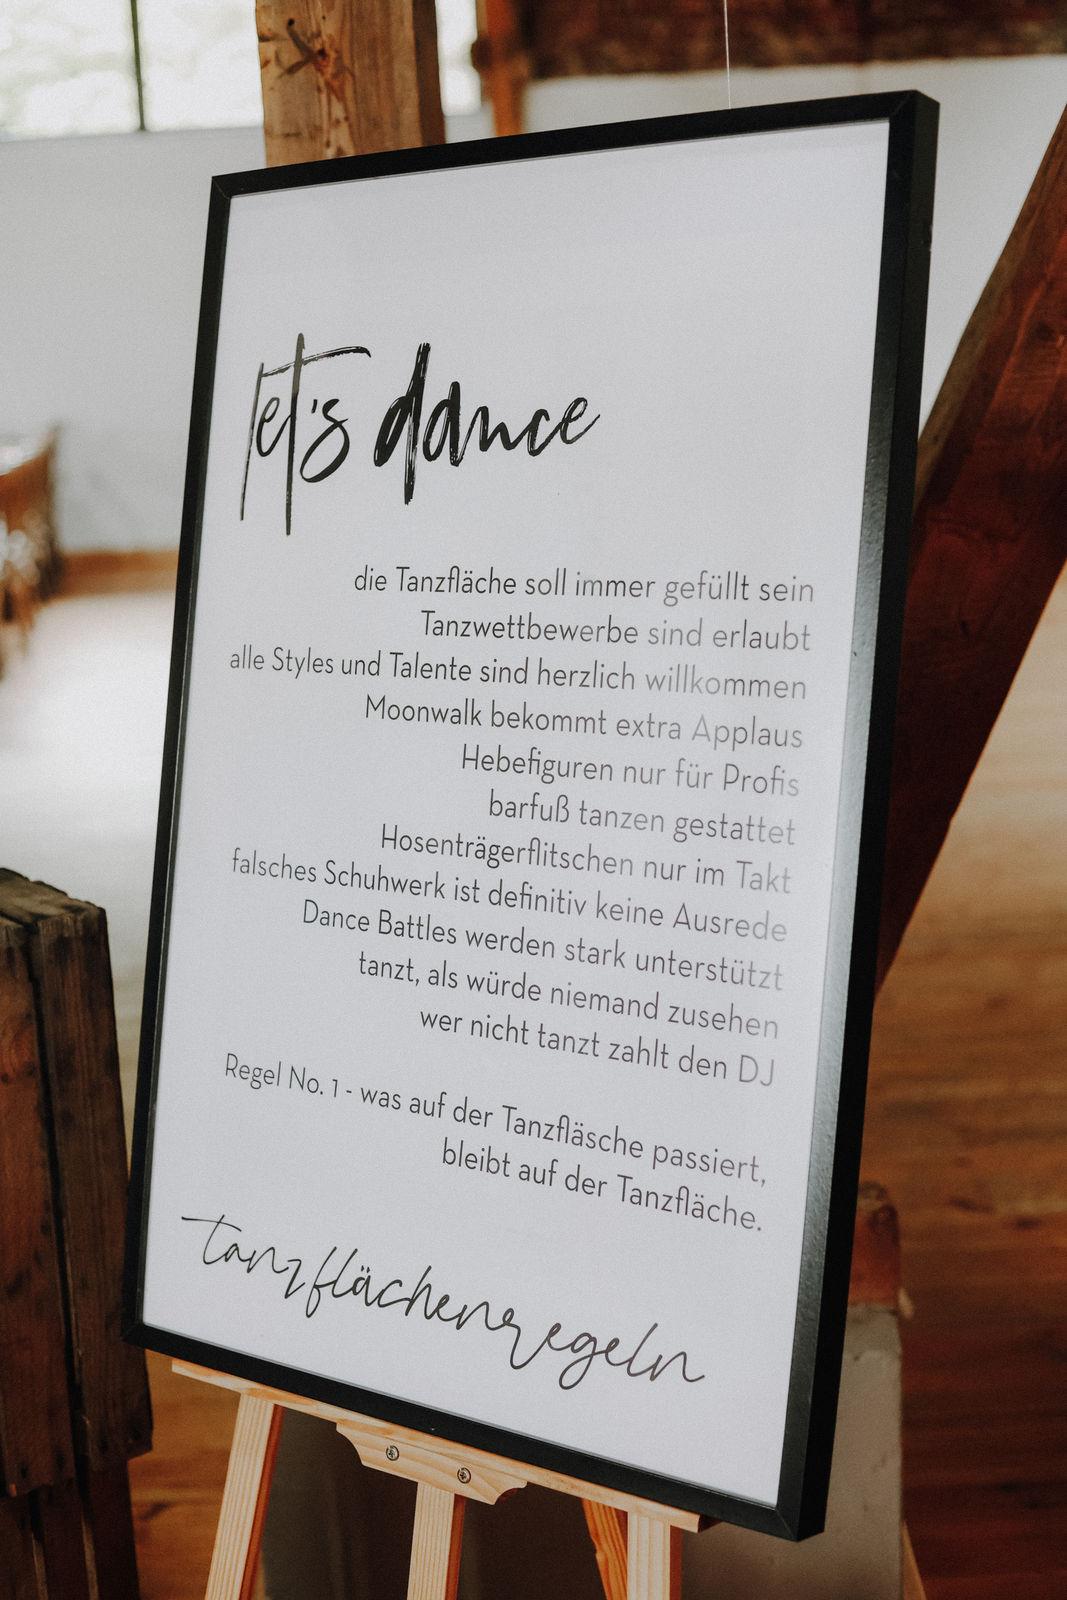 let's dance
die Tanzfläche soll immer gefüllt sein
Tanzwettbewerbe sind erlaubt
alle Styles und Talente sind herzlich willkommen
Moonwalk bekommt extra Applaus
Hebefiguren nur für Profis
barfuß tanzen gestattet
Hosenträgerflitschen nur im Takt
falsches Schuhwerk ist definitiv keine Ausrede
Dance Battles werden stark unterstützt
tanzt, als würde niemand zusehen
wer nicht tanzt zahlt den DJ
Regel No. 1 - was auf der Tanzfläsche passiert,
bleibt auf der Tanzfläche.
tanzflächenregeln